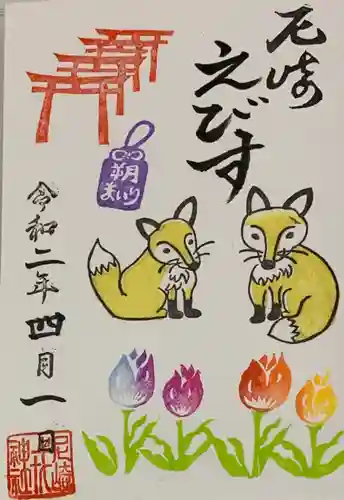 尼崎
えびす
朔
まいり
令和二年四月一日